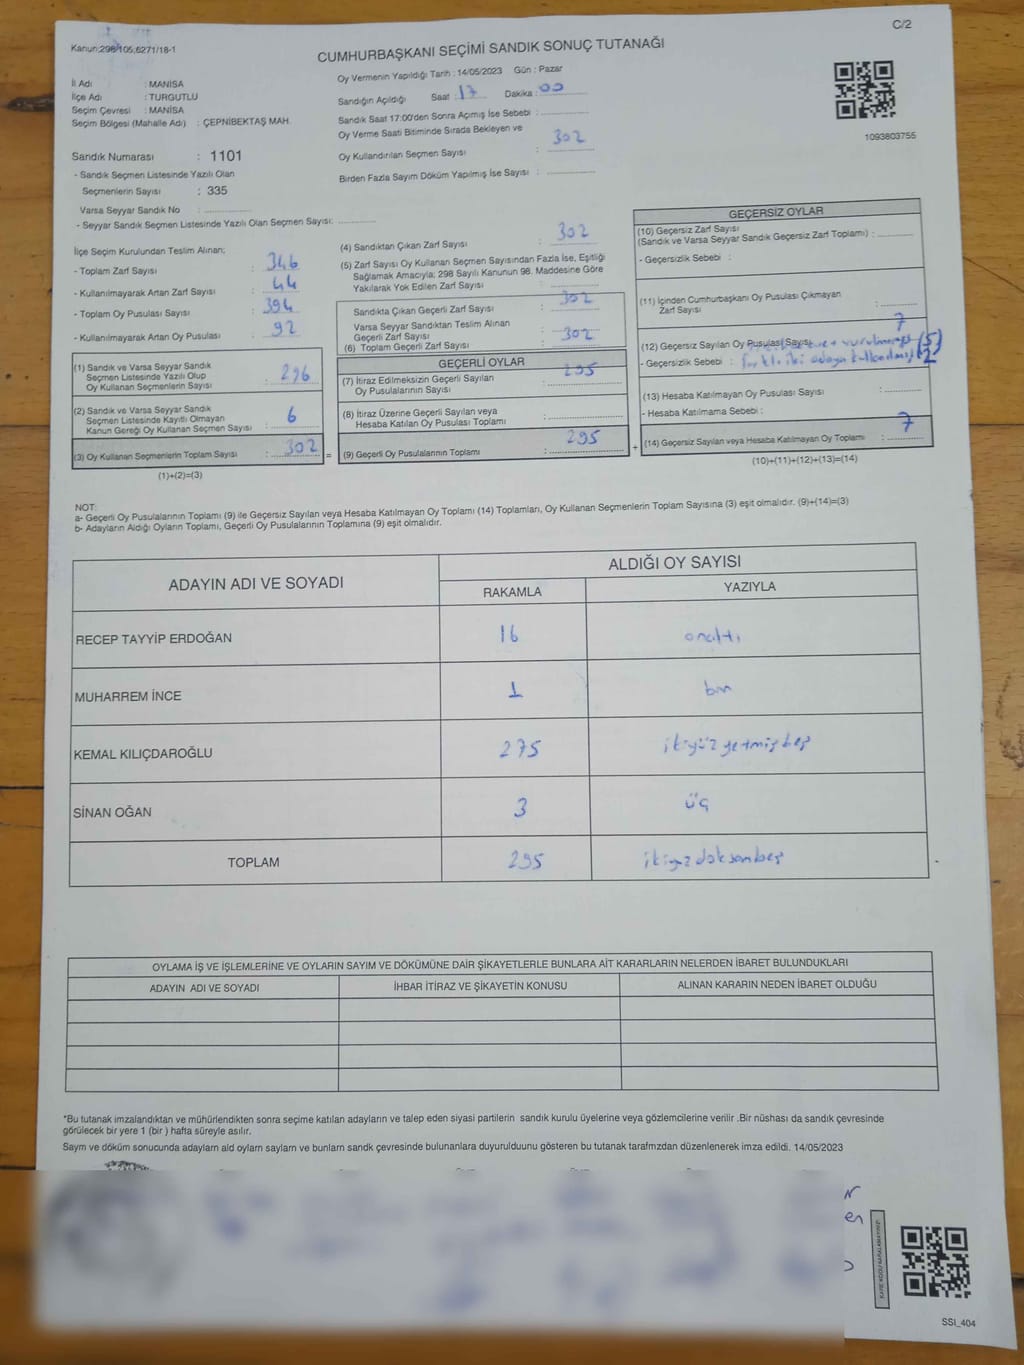 C/2
Kanun:298/105,6271/18-1
CUMHURBAŞKANI SEÇİMİ SANDIK SONUÇ TUTANAĞI
İl Adı : MANİSA
İlçe Adı : TURGUTLU
Seçim Çevresi : MANİSA
Seçim Bölgesi (Mahalle Adı) : ÇEPNİBEKTAŞ MAH.
Oy Vermenin Yapıldığı Tarih : 14/05/2023 Gün : Pazar
Sandığın Açıldığı Saat : 17 Dakika : 00
Sandık Saat 17:00'den Sonra Açımış İse Sebebi :
Oy Verme Saati Bitiminde Sırada Bekleyen ve
Oy Kullandırılan Seçmen Sayısı : 302
Birden Fazla Sayım Döküm Yapılmış İse Sayısı :
1093803755
Sandık Numarası : 1101
- Sandık Seçmen Listesinde Yazılı Olan
Seçmenlerin Sayısı : 335
Varsa Seyyar Sandık No :
- Seyyar Sandık Seçmen Listesinde Yazılı Olan Seçmen Sayısı:
İlçe Seçim Kurulundan Teslim Alınan;
- Toplam Zarf Sayısı : 346
- Kullanılmayarak Artan Zarf Sayısı : 44
- Toplam Oy Pusulası Sayısı : 394
- Kullanılmayarak Artan Oy Pusulası : 92
(1) Sandık ve Varsa Seyyar Sandık
Seçmen Listesinde Yazılı Olup
Oy Kullanan Seçmenlerin Sayısı : 296
(2) Sandık ve Varsa Seyyar Sandık
Seçmen Listesinde Kayıtlı Olmayan
Kanun Gereği Oy Kullanan Seçmen Sayısı : 6
(3) Oy Kullanan Seçmenlerin Toplam Sayısı : 302 =
(1)+(2)=(3)
(4) Sandıktan Çıkan Zarf Sayısı : 302
(5) Zarf Sayısı Oy Kullanan Seçmen Sayısından Fazla İse, Eşitliği
Sağlamak Amacıyla; 298 Sayılı Kanunun 98. Maddesine Göre
Yakılarak Yok Edilen Zarf Sayısı :
Sandıkta Çıkan Geçerli Zarf Sayısı : 302
Varsa Seyyar Sandıktan Teslim Alınan
Geçerli Zarf Sayısı :
(6) Toplam Geçerli Zarf Sayısı : 302
GEÇERLİ OYLAR
(7) İtiraz Edilmeksizin Geçerli Sayılan
Oy Pusulasının Sayısı : 295
(8) İtiraz Üzerine Geçerli Sayılan veya
Hesaba Katılan Oy Pusulası Toplamı :
(9) Geçerli Oy Pusulalarının Toplamı : 295 +
GEÇERSİZ OYLAR
(10) Geçersiz Zarf Sayısı
(Sandık ve Varsa Seyyar Sandık Geçersiz Zarf Toplamı) :
- Geçersizlik Sebebi :
(11) İçinden Cumhurbaşkanı Oy Pusulası Çıkmayan
Zarf Sayısı :
(12) Geçersiz Sayılan Oy Pusulası Sayısı 7
vurulmamış (5)
- Geçersizlik Sebebi : Farklı iki adaya kullanılmış (2)
(13) Hesaba Katılmayan Oy Pusulası Sayısı :
- Hesaba Katılmama Sebebi :
(14) Geçersiz Sayılan veya Hesaba Katılmayan Oy Toplamı : 7
(10)+(11)+(12)+(13)=(14)
NOT:
a- Geçerli Oy Pusulalarının Toplamı (9) ile Geçersiz Sayılan veya Hesaba Katılmayan Oy Toplamı (14) Toplamları, Oy Kullanan Seçmenlerin Toplam Sayısına (3) eşit olmalıdır. (9)+(14)=(3)
b- Adayların Aldığı Oyların Toplamı, Geçerli Oy Pusulalarının Toplamına (9) eşit olmalıdır.
ADAYIN ADI VE SOYADI
ALDIĞI OY SAYISI
RAKAMLA YAZIYLA
RECEP TAYYİP ERDOĞAN 16 onaltı
MUHARREM İNCE 1 bir
KEMAL KILIÇDAROĞLU 275 ikiyüz yetmiş beş
SİNAN OĞAN 3 üç
TOPLAM 295 ikiyüz doksanbeş
OYLAMA İŞ VE İŞLEMLERİNE VE OYLARIN SAYIM VE DÖKÜMÜNE DAİR ŞİKAYETLERLE BUNLARA AİT KARARLARIN NELERDEN İBARET BULUNDUKLARI
ADAYIN ADI VE SOYADI İHBAR İTİRAZ VE ŞİKAYETİN KONUSU ALINAN KARARIN NEDEN İBARET OLDUĞU
*Bu tutanak imzalandıktan ve mühürlendikten sonra seçime katılan adayların ve talep eden siyasi partilerin sandık kurulu üyelerine veya gözlemcilerine verilir .Bir nüshası da sandık çevresinde
görülecek bir yere 1 (bir ) hafta süreyle asılır.
Sayım ve döküm sonucunda adayların ald oyların saylam ve bunlarn sandk çevresinde bulunanlara duyurulduunu gösteren bu tutanak tarafmzdan düzenlenerek imza edildi. 14/05/2023
SSI_404